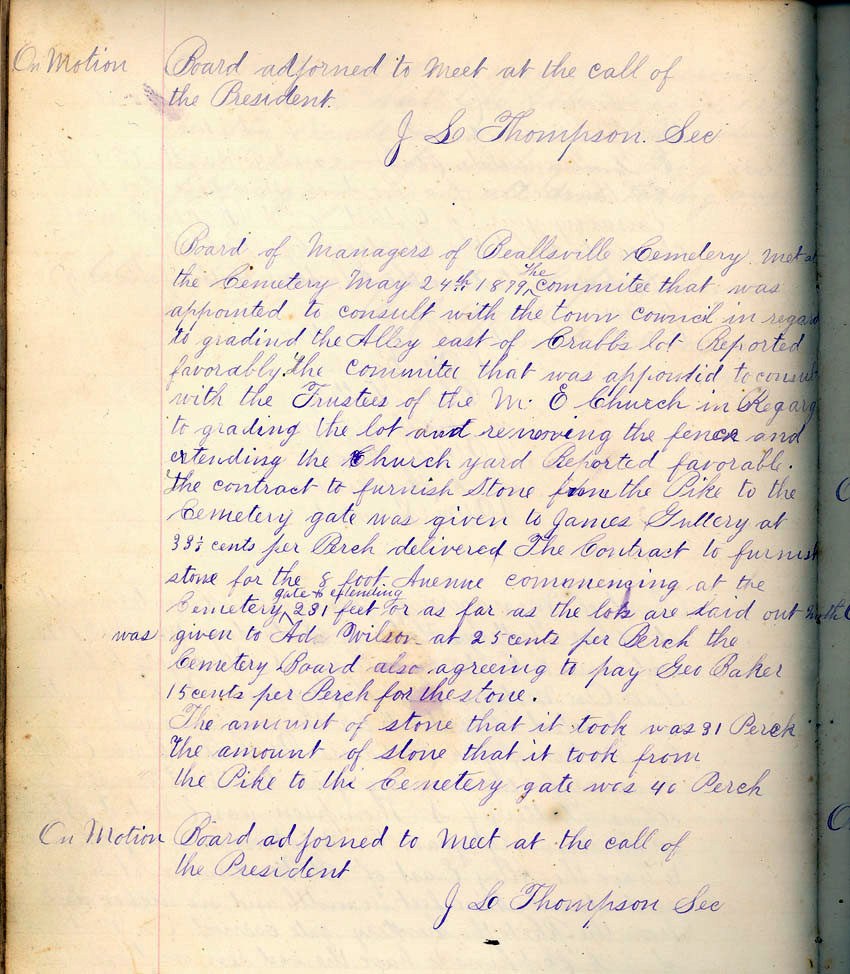 On Motion Board adjorned to meet at the call of
the President.
J L Thompson. Sec
Board of Managers of Beallsville Cemetery met at
the Cemetery May 24th 1879 The commitee that was
appointed to consult with the town council in regard
to gradind the Alley east of Crabbs lot Reported
favorably. The commitee that was appointid to consult
with the Trustees of the M. E Church in Regarg
to grading the lot and removing the fence and
extending the Church yard Reported favorable.
The contract to furnish Stone from the Pike to the
Cemetery gate was given to James Gullery at
33⅓ cents per Perch delivered The Contract to furnish
stone for the 8 foot Avenue commencing at the
Cemetery gate & extending 231 feet or as far as the lots are laid out
was given to Ad Wilson at 25 cents per Perch the
Cemetery Board also agreeing to pay Geo Baker
15 cents per Perch for the stone.
The amount of stone that it took was 31 Perch
The amount of stone that it took from
the Pike to the Cemetery gate was 40 Perch
On Motion Board adjorned to meet at the call of
the President
J L Thompson Sec